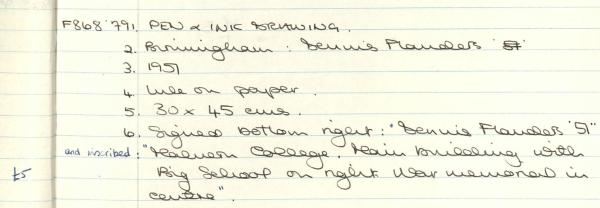 F868'791. PEN & INK DRAWING.
2. Birmingham : Dennis Flanders '51'
3. 1951
4. Ink on paper.
5. 30 x 45 cms.
6. Signed bottom right: "Dennis Flanders '51"
and inscribed: "Malvern College. Main Building with
£5 Big School on right War memorial in
centre".